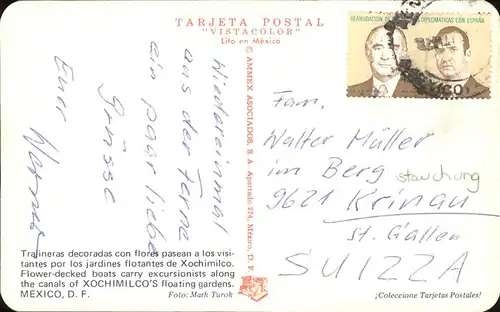 TARJETA POSTAL
"VISTACOLOR"
Lito en México
Wiedereinmal
aus der Ferne
ein paar liebe
Grüsse
Euer Werner
Trajineras decoradas con flores pasean a los visi-
tantes por los jardines flotantes de Xochimilco.
Flower-decked boats carry excursionists along
the canals of XOCHIMILCO'S floating gardens.
MEXICO, D. F.
Foto: Mark Turok
© AMMEX ASOCIADOS, S. A. Apartado 274, México, D. F.
REANUDACION DE DIPLOMATICAS CON ESPAÑA
Fam.
Walter Müller
im Berg stauchung
9621 Krinau
St. Gallen
SUIZZA
¡Coleccione Tarjetas Postales!